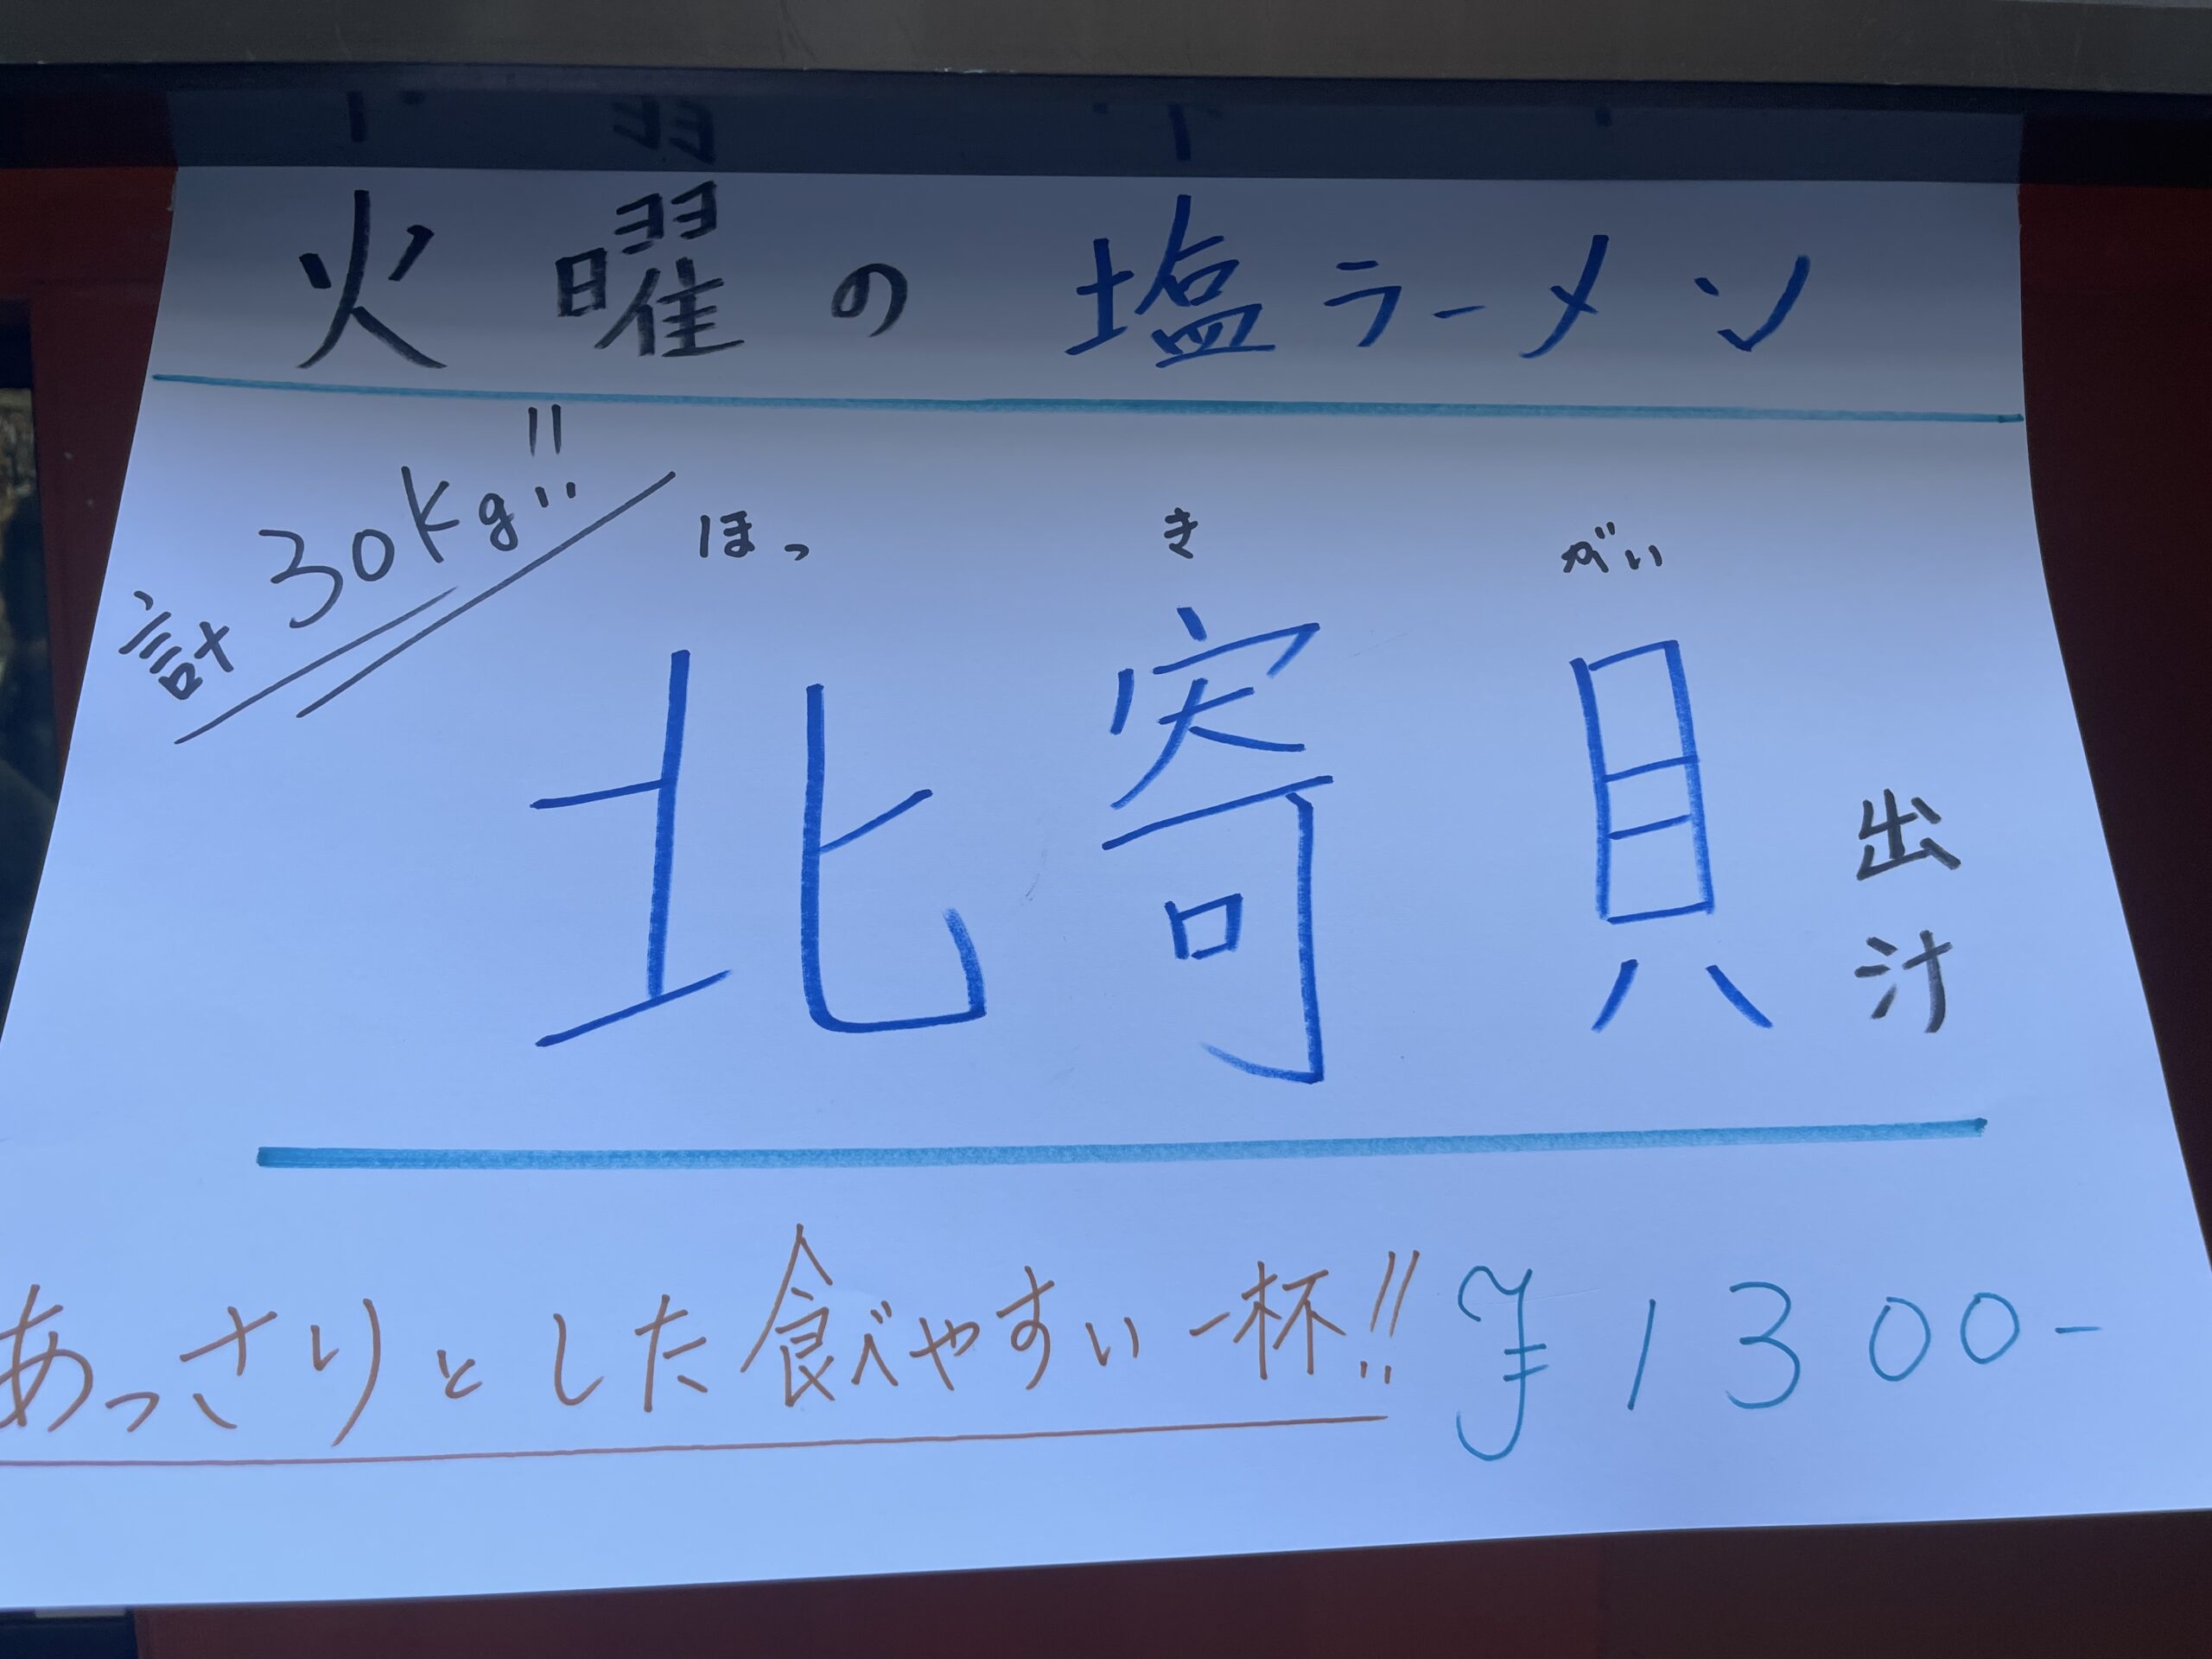 火曜の塩ラーメン
計30kg!!
ほっきがい
北寄貝出汁
あっさりとした食べやすい一杯!! ¥1300-